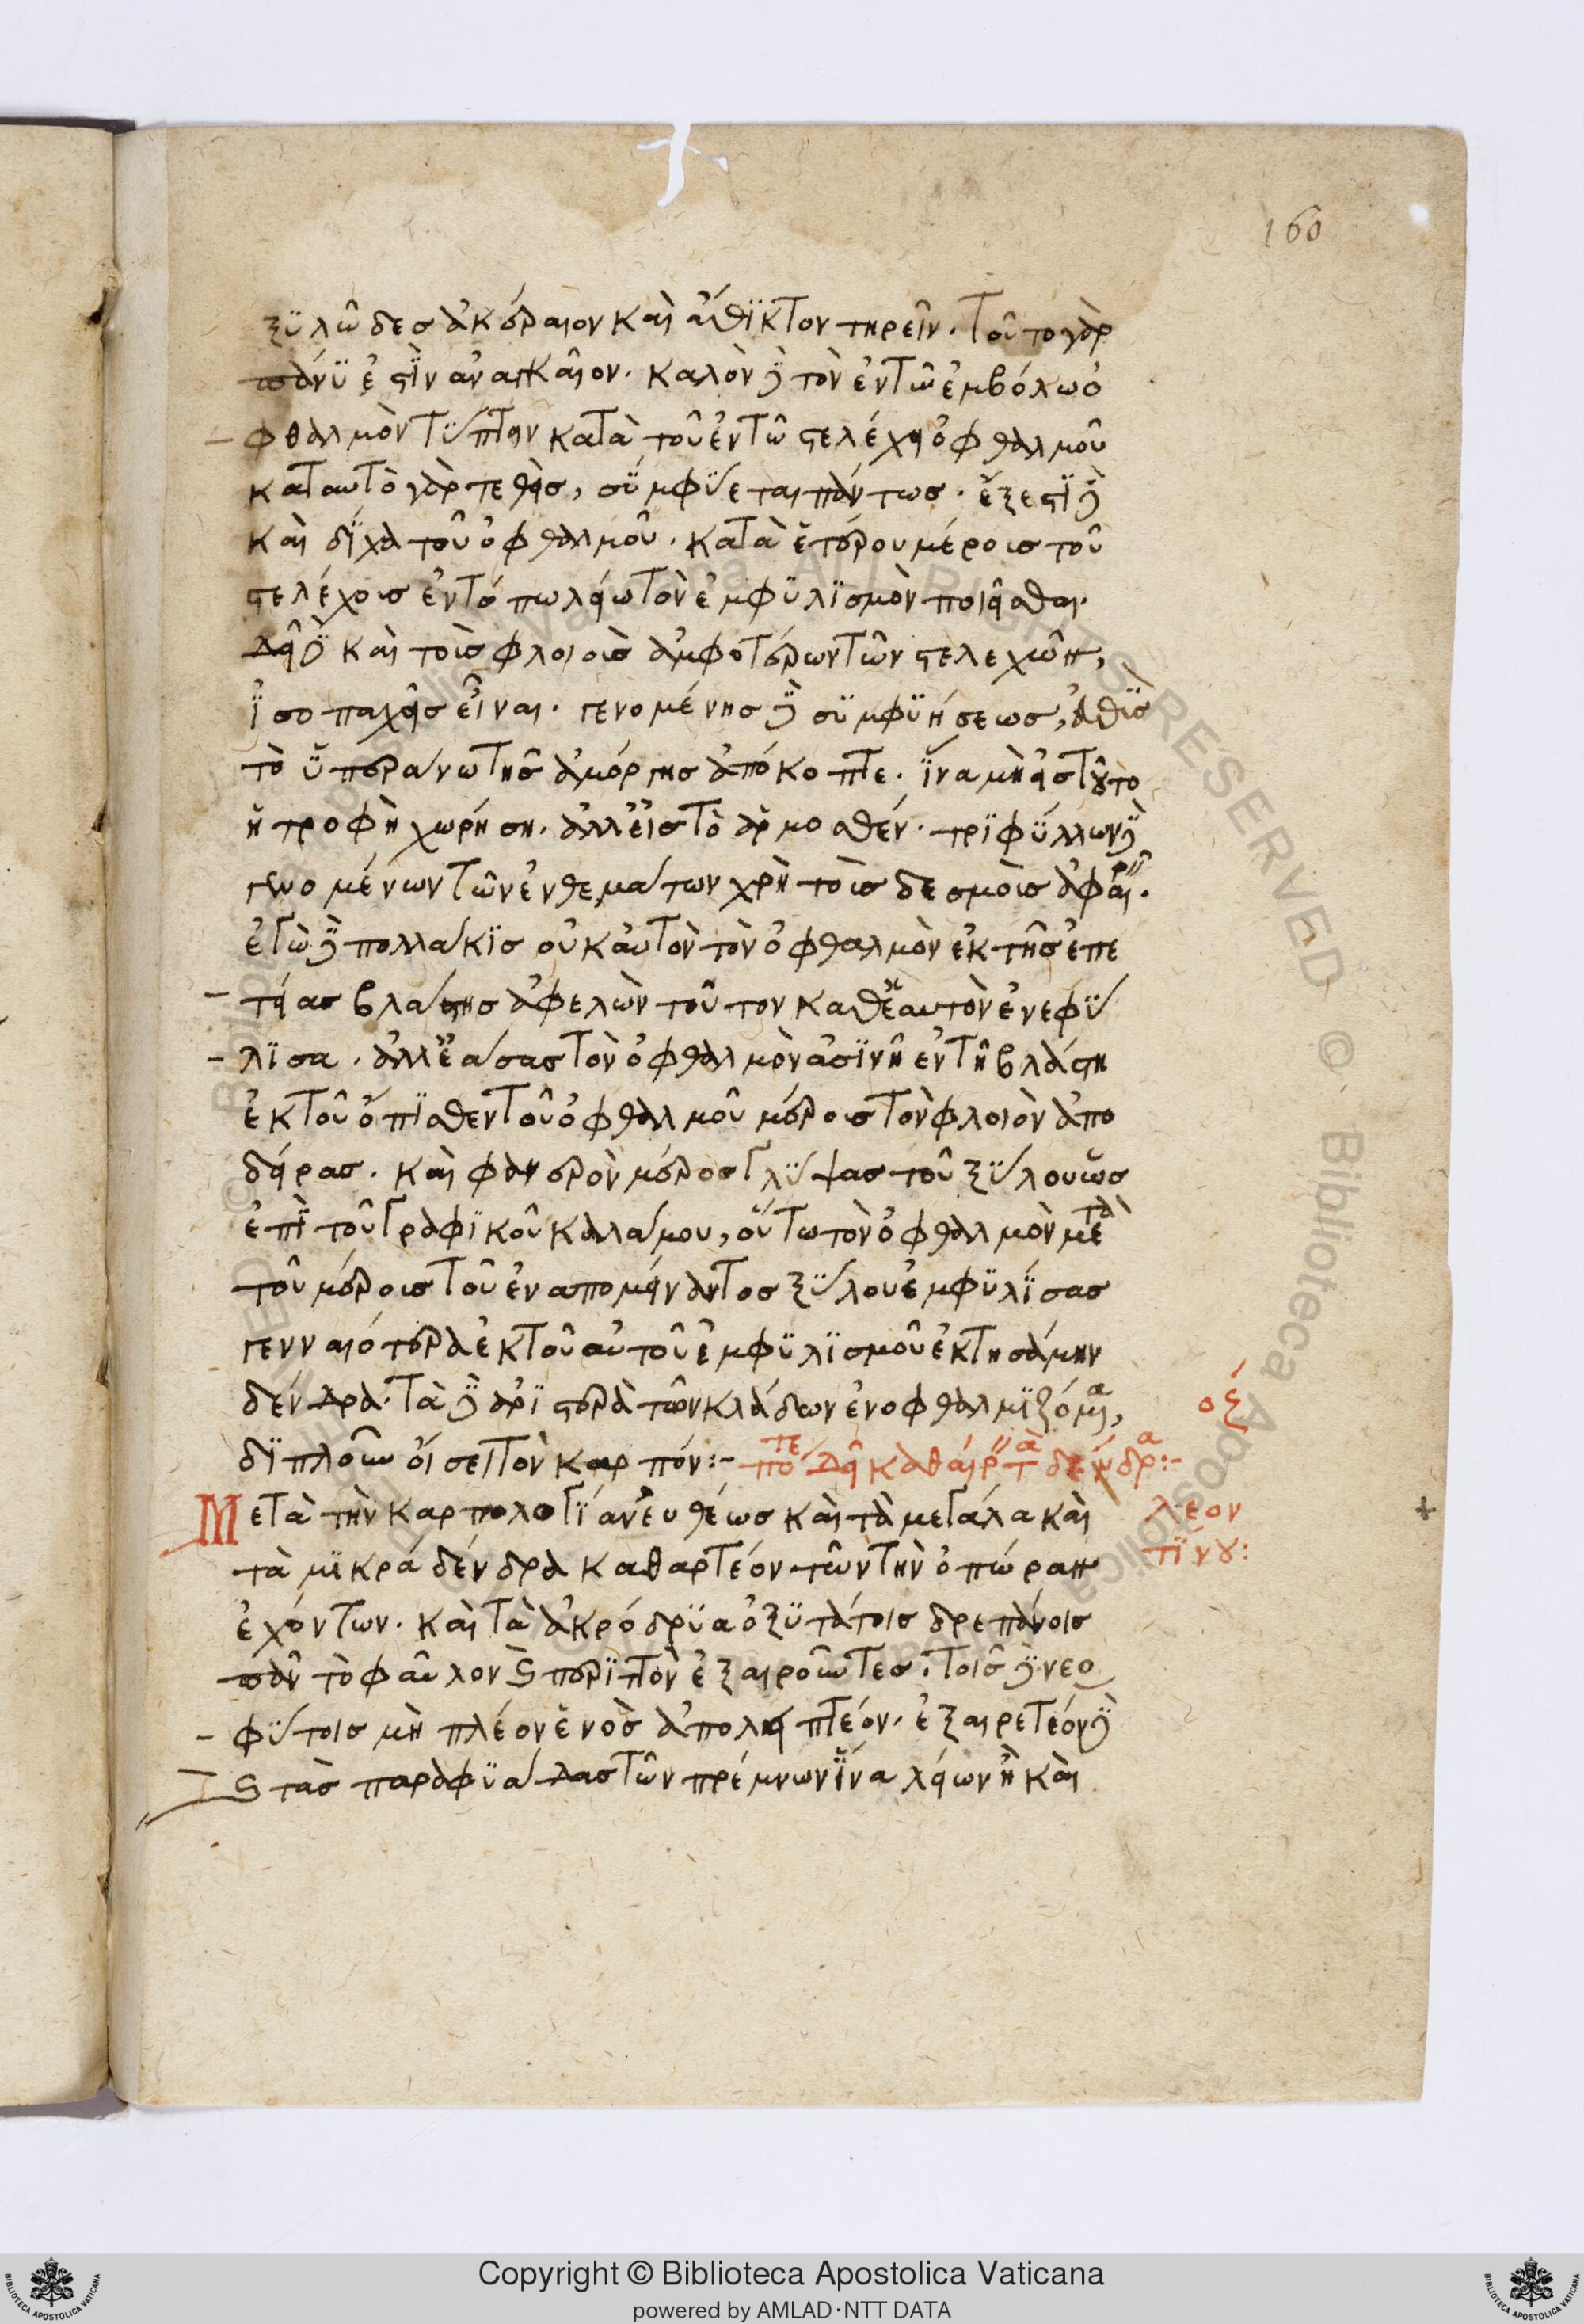 160
ξϋλῶδες ἀκέραιον καὶ ἄθϊκτον τηρεῖν. τοῦτο γὰρ
πάνϋ ἐστῒν ἀναγκαῖον. καλὸν δὲ τὸν ἐν τῶ ἐμβόλω ὀ
φθαλμὸν τΰπτειν κατὰ τοῦ ἐν τῶ στελέχει ὀφθαλμοῦ
κατ αυτὸ γὰρ τεθεὶς, σϋμφΰεται πάντως. ἔξεστϊ δὲ
καὶ δΐχα τοῦ ὀφθαλμοῦ. κατὰ ἑτέρου μέρους τοῦ
στελέχους ἐν τόπω λείω τὸν ἐμφϋλϊσμὸν ποιεῖσθαι.
δεῖ δὲ καὶ τοὺς φλοιοὺς ἀμφοτέρων τῶν στελεχῶν,
ἰσοπαχεῖς εἶναι. γενομένης δὲ σϋμφϋήσεως, εὐθῢς
τὸ ὑπεράνω τῆς ἀμόργης ἀπόκοπτε. ἵνα μὴ εἰς τοῦτο
ἡ τροφὴ χωρήση. ἀλλ εἰς τὸ ἁρμοσθέν. τρϊφΰλλων δὲ
γινομένων τῶν ἐνθεμάτων χρὴ τοὺς δεσμοὺς ἀφαιρεῖν.
ἐγὼ δὲ πολλάκϊς οὐκ αὐτὸν τὸν ὀφθαλμὸν ἐκ τῆς ἐπε
τείας βλάστης ἀφελὼν τοῦτον καθ ἑαυτὸν ἐνεφΰ
λϊσα. ἀλλ ἐάσας τὸν ὀφθαλμὸν ἀσϊνῆ ἐν τῆ βλάστη
ἐκ τοῦ ὄπϊσθεν τοῦ ὀφθαλμοῦ μέρους τὸν φλοιὸν ἀπο
δείρας. καὶ φανερὸν μέρος γλΰψας τοῦ ξΰλου ὡς
ἐπῒ τοῦ γραφϊκοῦ καλάμου, οὕτω τὸν ὀφθαλμὸν μετὰ
τοῦ μέρους τοῦ ἐναπομείναντος ξΰλου ἐμφϋλΐσας
γενναιότερα ἐκ τοῦ αὐτοῦ ἐμφϋλϊσμοῦ ἐκτησάμην
δένδρα. τὰ δὲ ἀρϊστερὰ τῶν κλάδων ἐνοφθαλμϊζόμενα,
δϊπλοῦν οἴσει τὸν καρπόν:- πότε δεῖ καθαίρειν τὰ δένδρα:-
οξ
Μετὰ τὴν καρπολογΐαν εὐθέως καὶ τὰ μεγάλα καὶ
λεον
τὰ μϊκρά δένδρα καθαρτέον τῶν τὴν ὀπώραν
τΐνου:
ἐχόντων. καὶ τὰ ἀκρόδρϋα ὀξϋτάτοις δρεπάνοις
πᾶν τὸ φαῦλον καὶ περϊττὸν ἐξαιροῦντες. τοῖς δὲ νεο
φΰτοις μὴ πλέον ἑνὸς ἀπολειπτέον. ἐξαιρετέον δὲ
καὶ τὰς παραφϋάδας τῶν πρέμνων ἵνα λείων ἢ καὶ